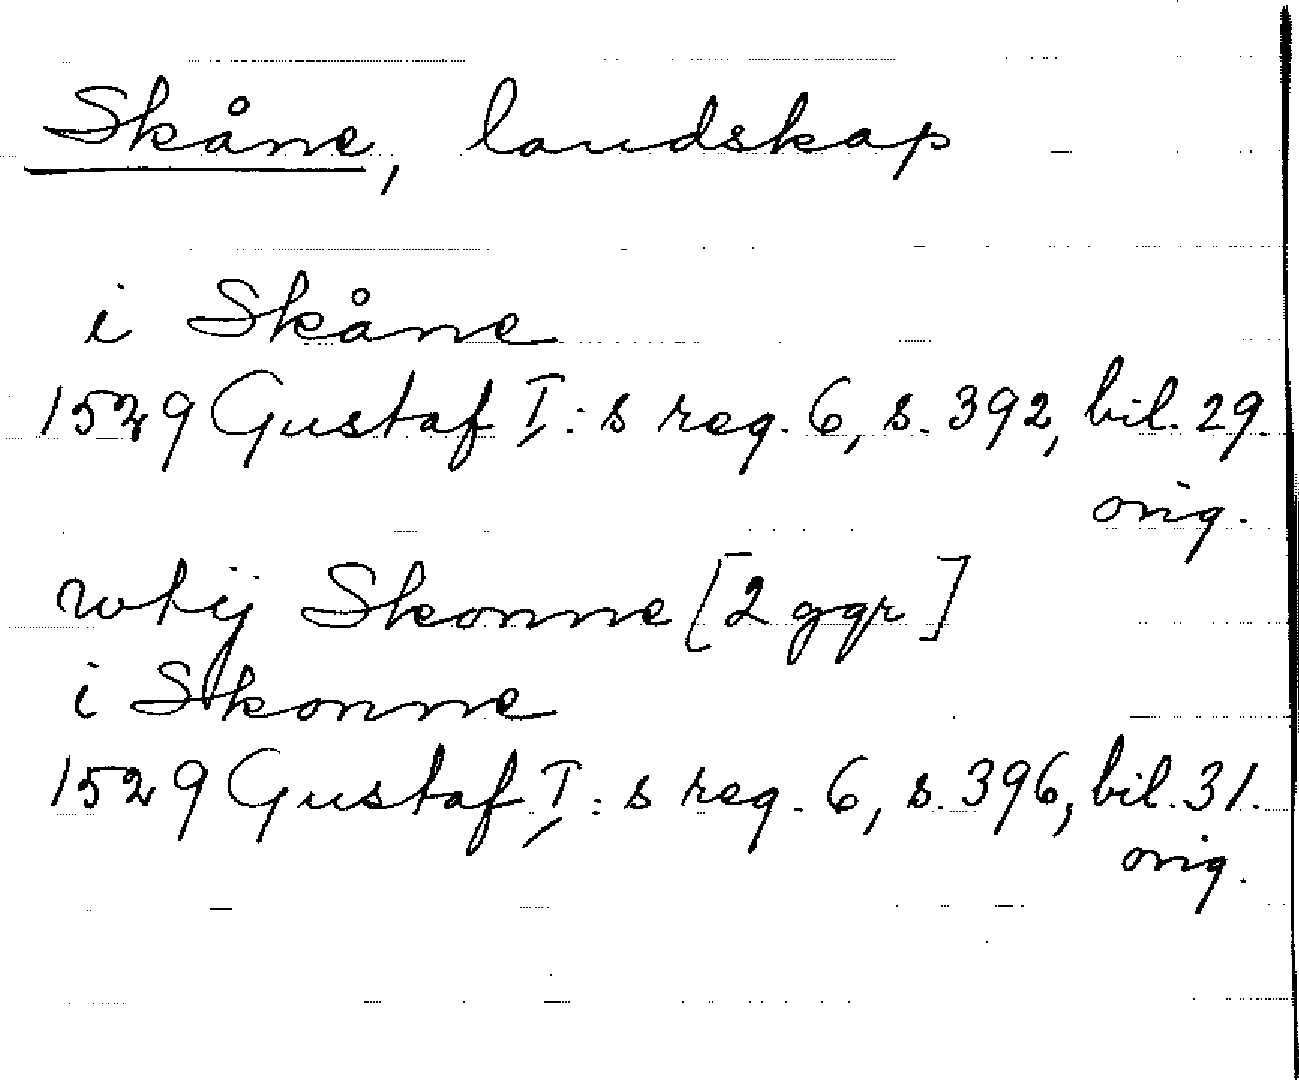 Skåne, landskap
i Skåne
1529 Gustaf I:s reg. 6, s. 392, bil. 29.
orig.
wtij Skonne [2 ggr]
i Skonne
1529 Gustaf I:s reg. 6, s. 396, bil. 31.
orig.